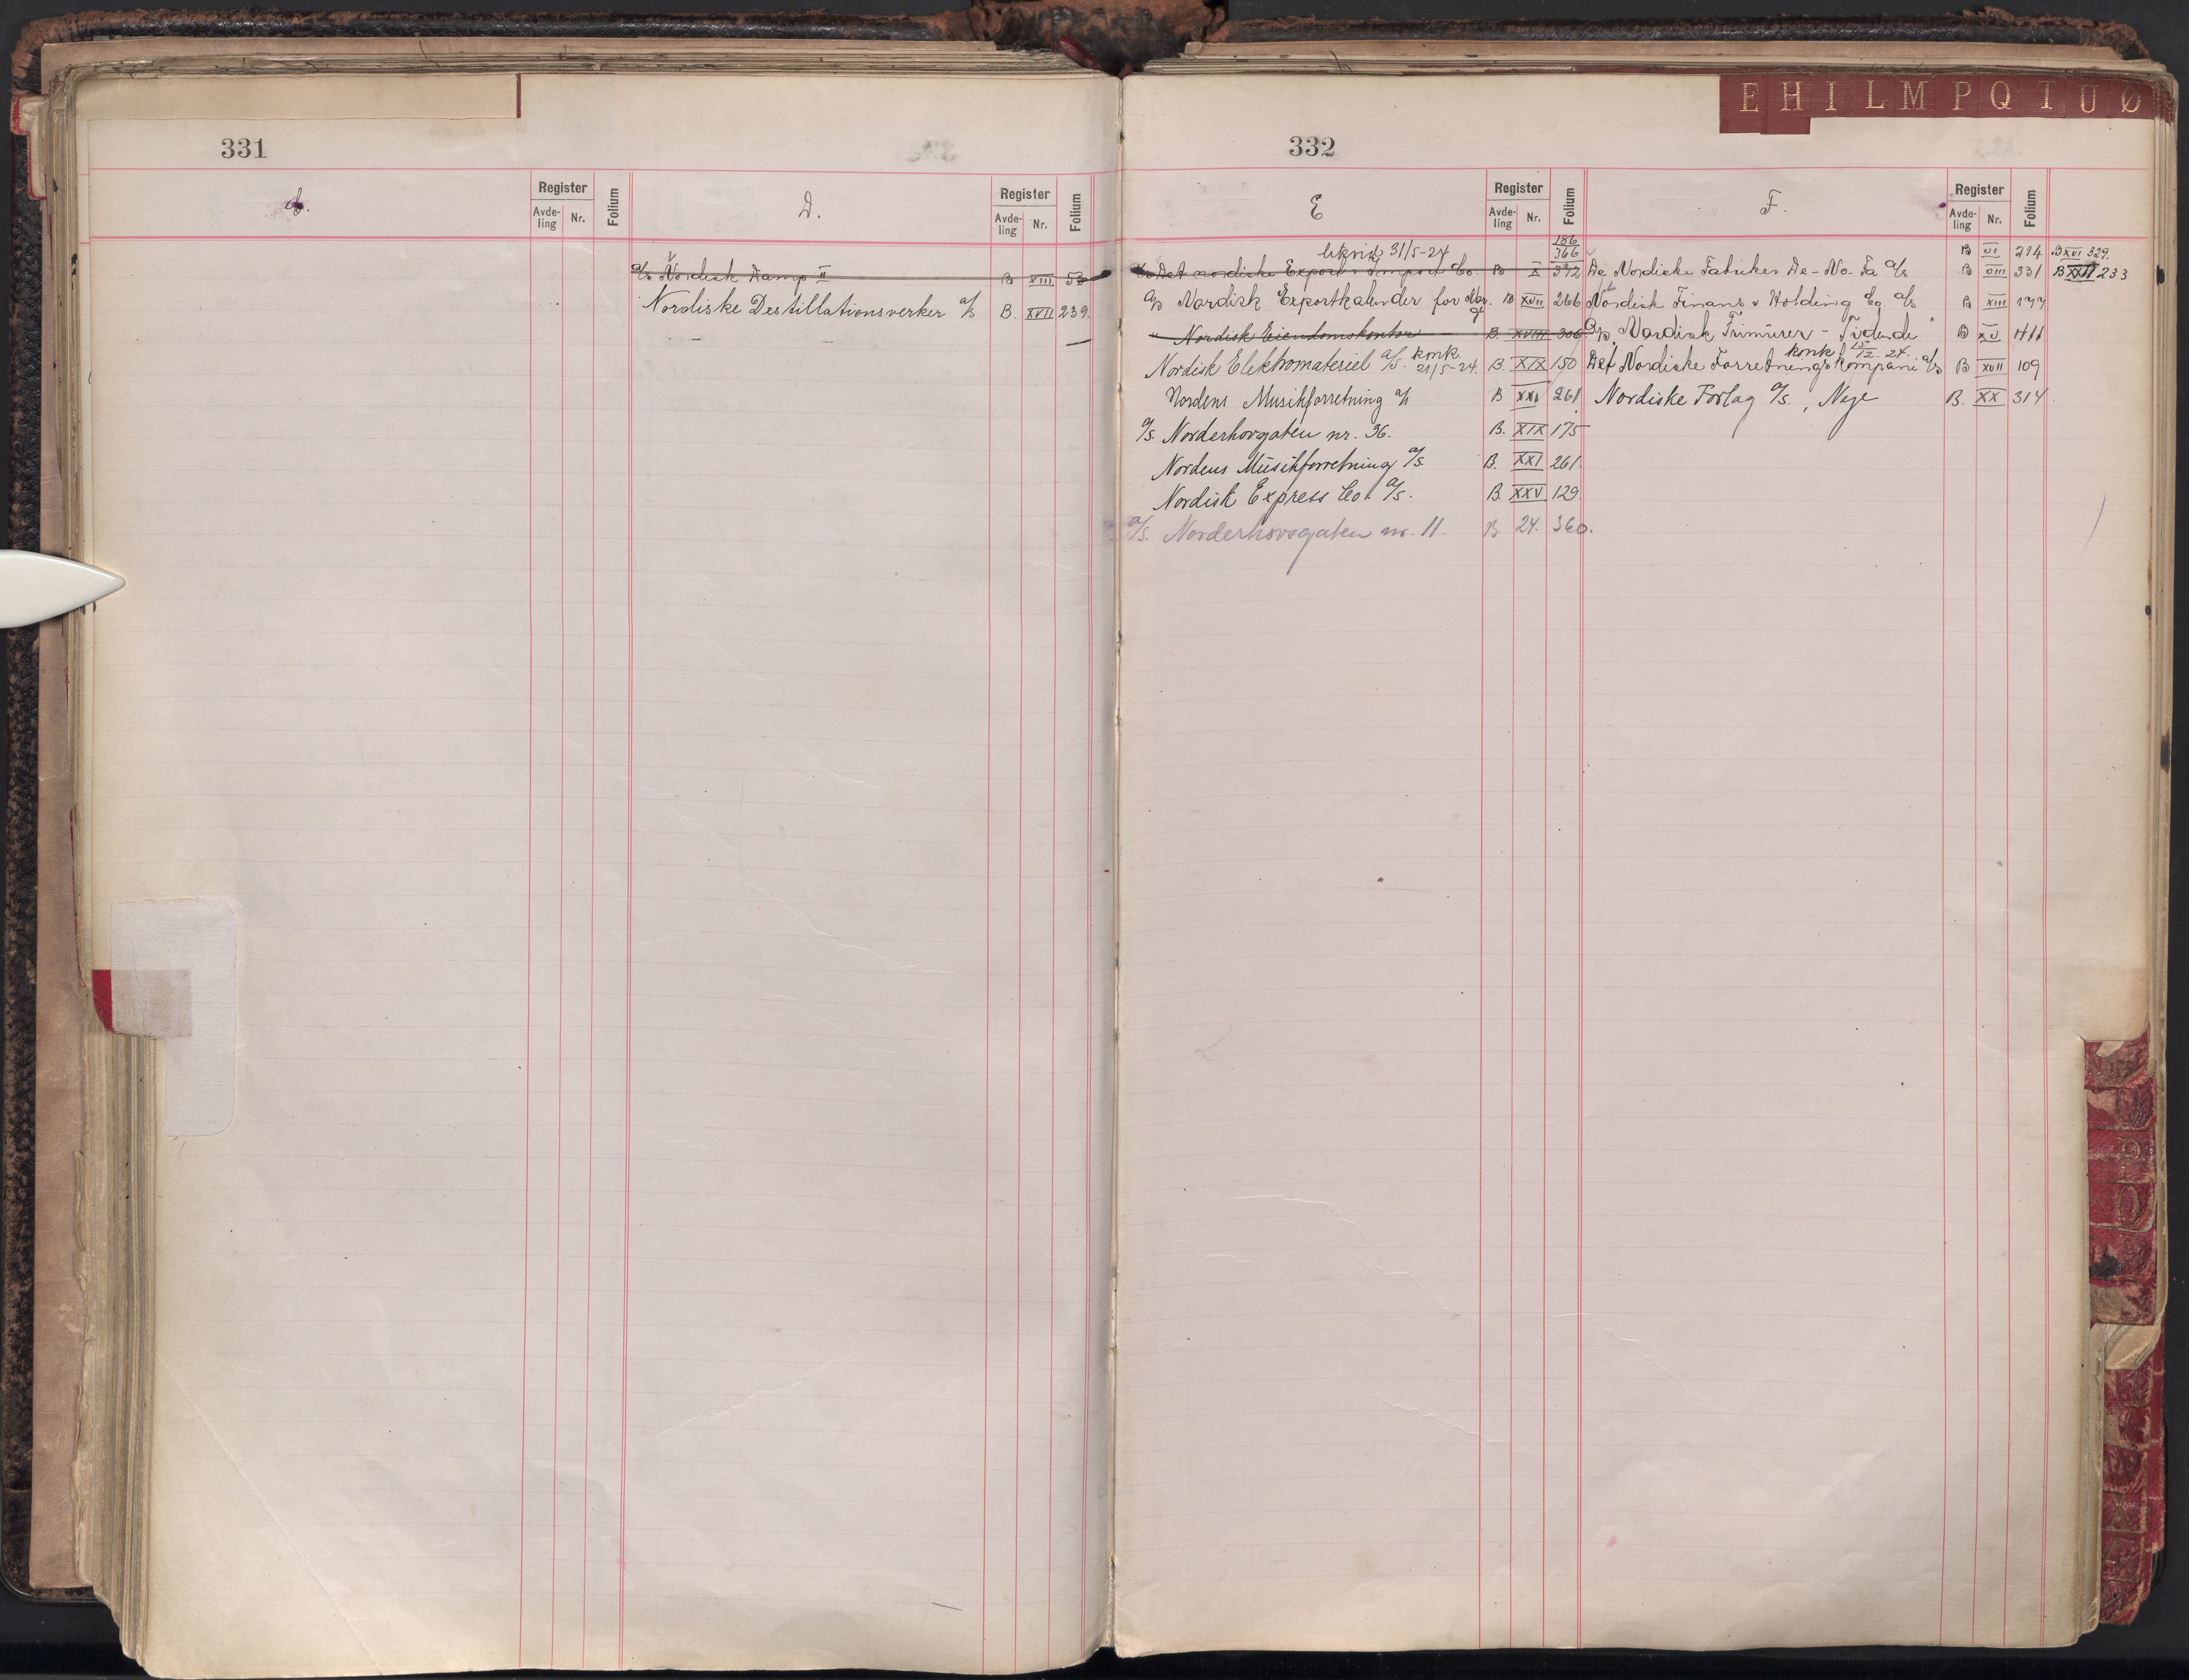 E H I L M P Q T U Ø
331
C.
Register
Avde-
ling
Nr.
Folium
D.
Register
Avde-
ling
Nr.
Folium
a/s Nordisk Damp II B XIII 53
Nordiske Destillationsverker a/s B. XVII 239.
332
E
Register
Avde-
ling
Nr.
Folium
31/5-24
186
366
Det nordiske Export & Import Co. B X 392
a/s Nordisk Exportkalender for Nor- B XVII 266
ge
" Nordisk Eiendomskontor B. XVIII 306.
Nordisk Elektromateriel a/s. konk. 21/5-24. B. XIX 150
Nordens Musikforretning a/s B XXI 261
a/s. Norderhovgaten nr. 36. B. XIX 175
Nordens Musikforretning a/s. B. XXI 261.
Nordisk Express Co. a/s. B. XXV 129.
a/s. Norderhovsgaten nr. 11. B. 24. 360.
F.
Register
Avde-
ling
Nr.
Folium
B VI 294 B XVI 329.
De Nordiske Fabriker De-No-Fa a/s B VIII 331 B XXII 233
Nordisk Finans & Holding Co. a/s B XIII 177
a/s Nordisk Frimurer-Tidende B XV 411
konk. 15/12. 24.
Det Nordiske Forretningskompani a/s B XVII 109
Nordiske Forlag a/s., Nye B. XX 314.